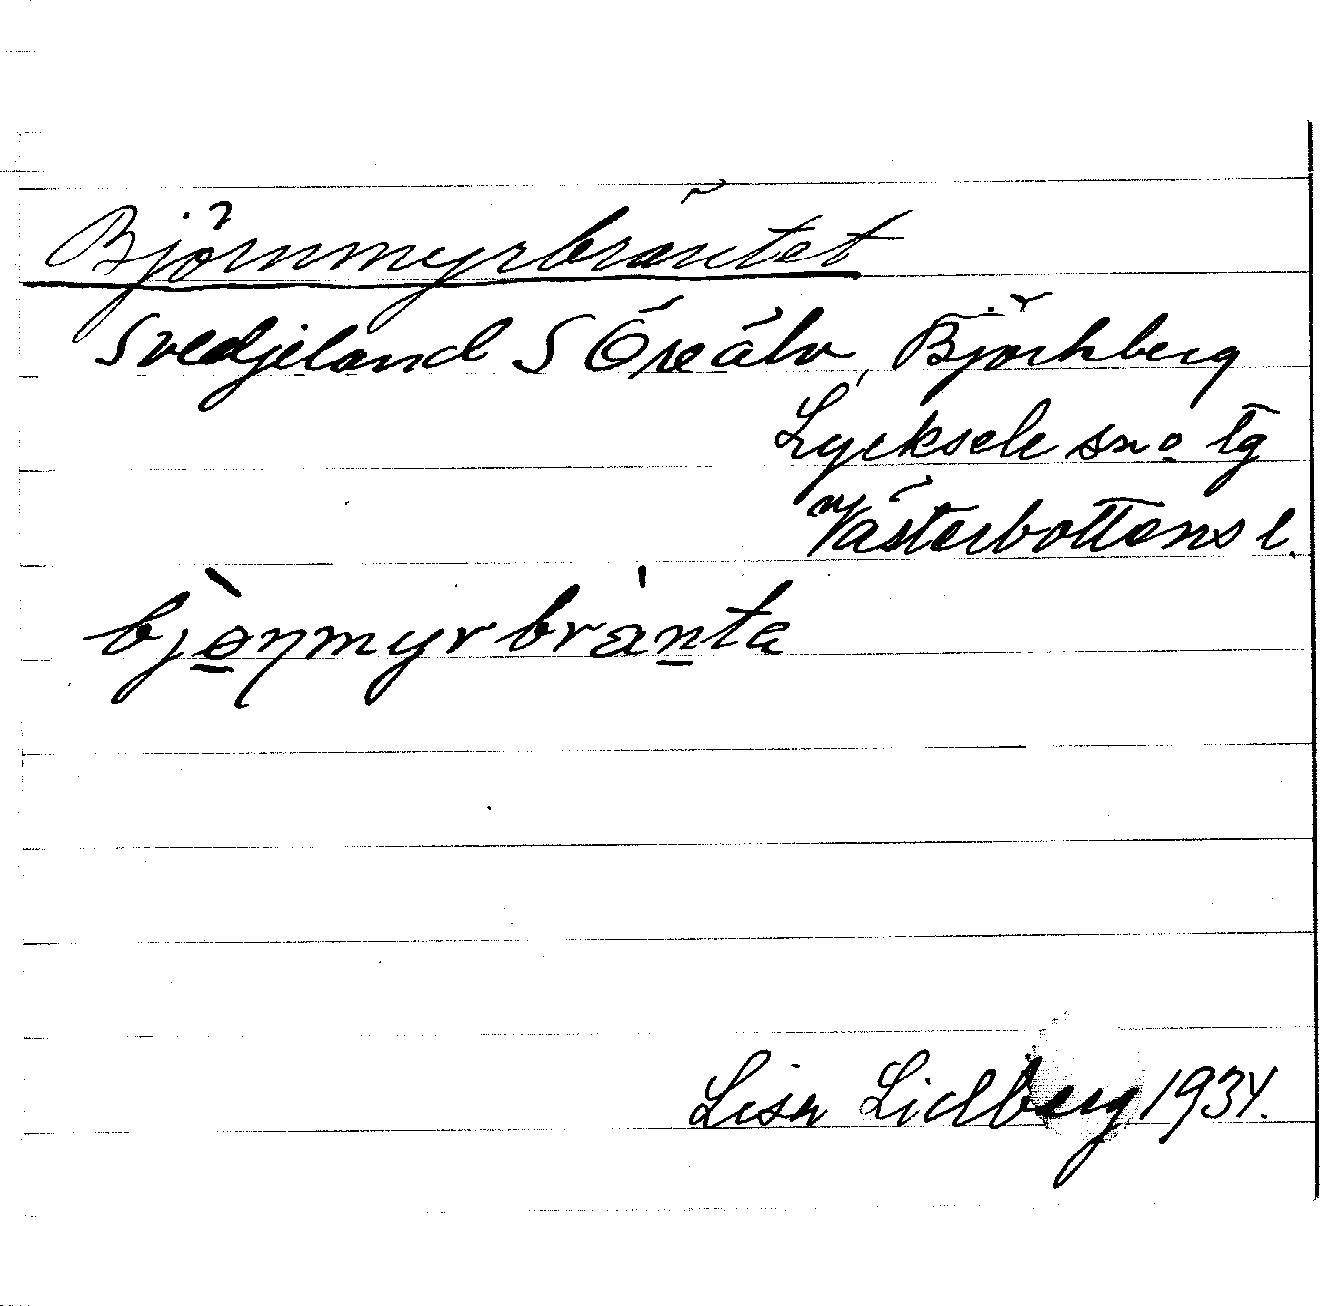 Björnmyrbräntet
Svedjeland S Öreälv, Björkberg
Lycksele sn o tg
Västerbottens l.
bjònmyrbránta
Lisa Lidberg 1934.